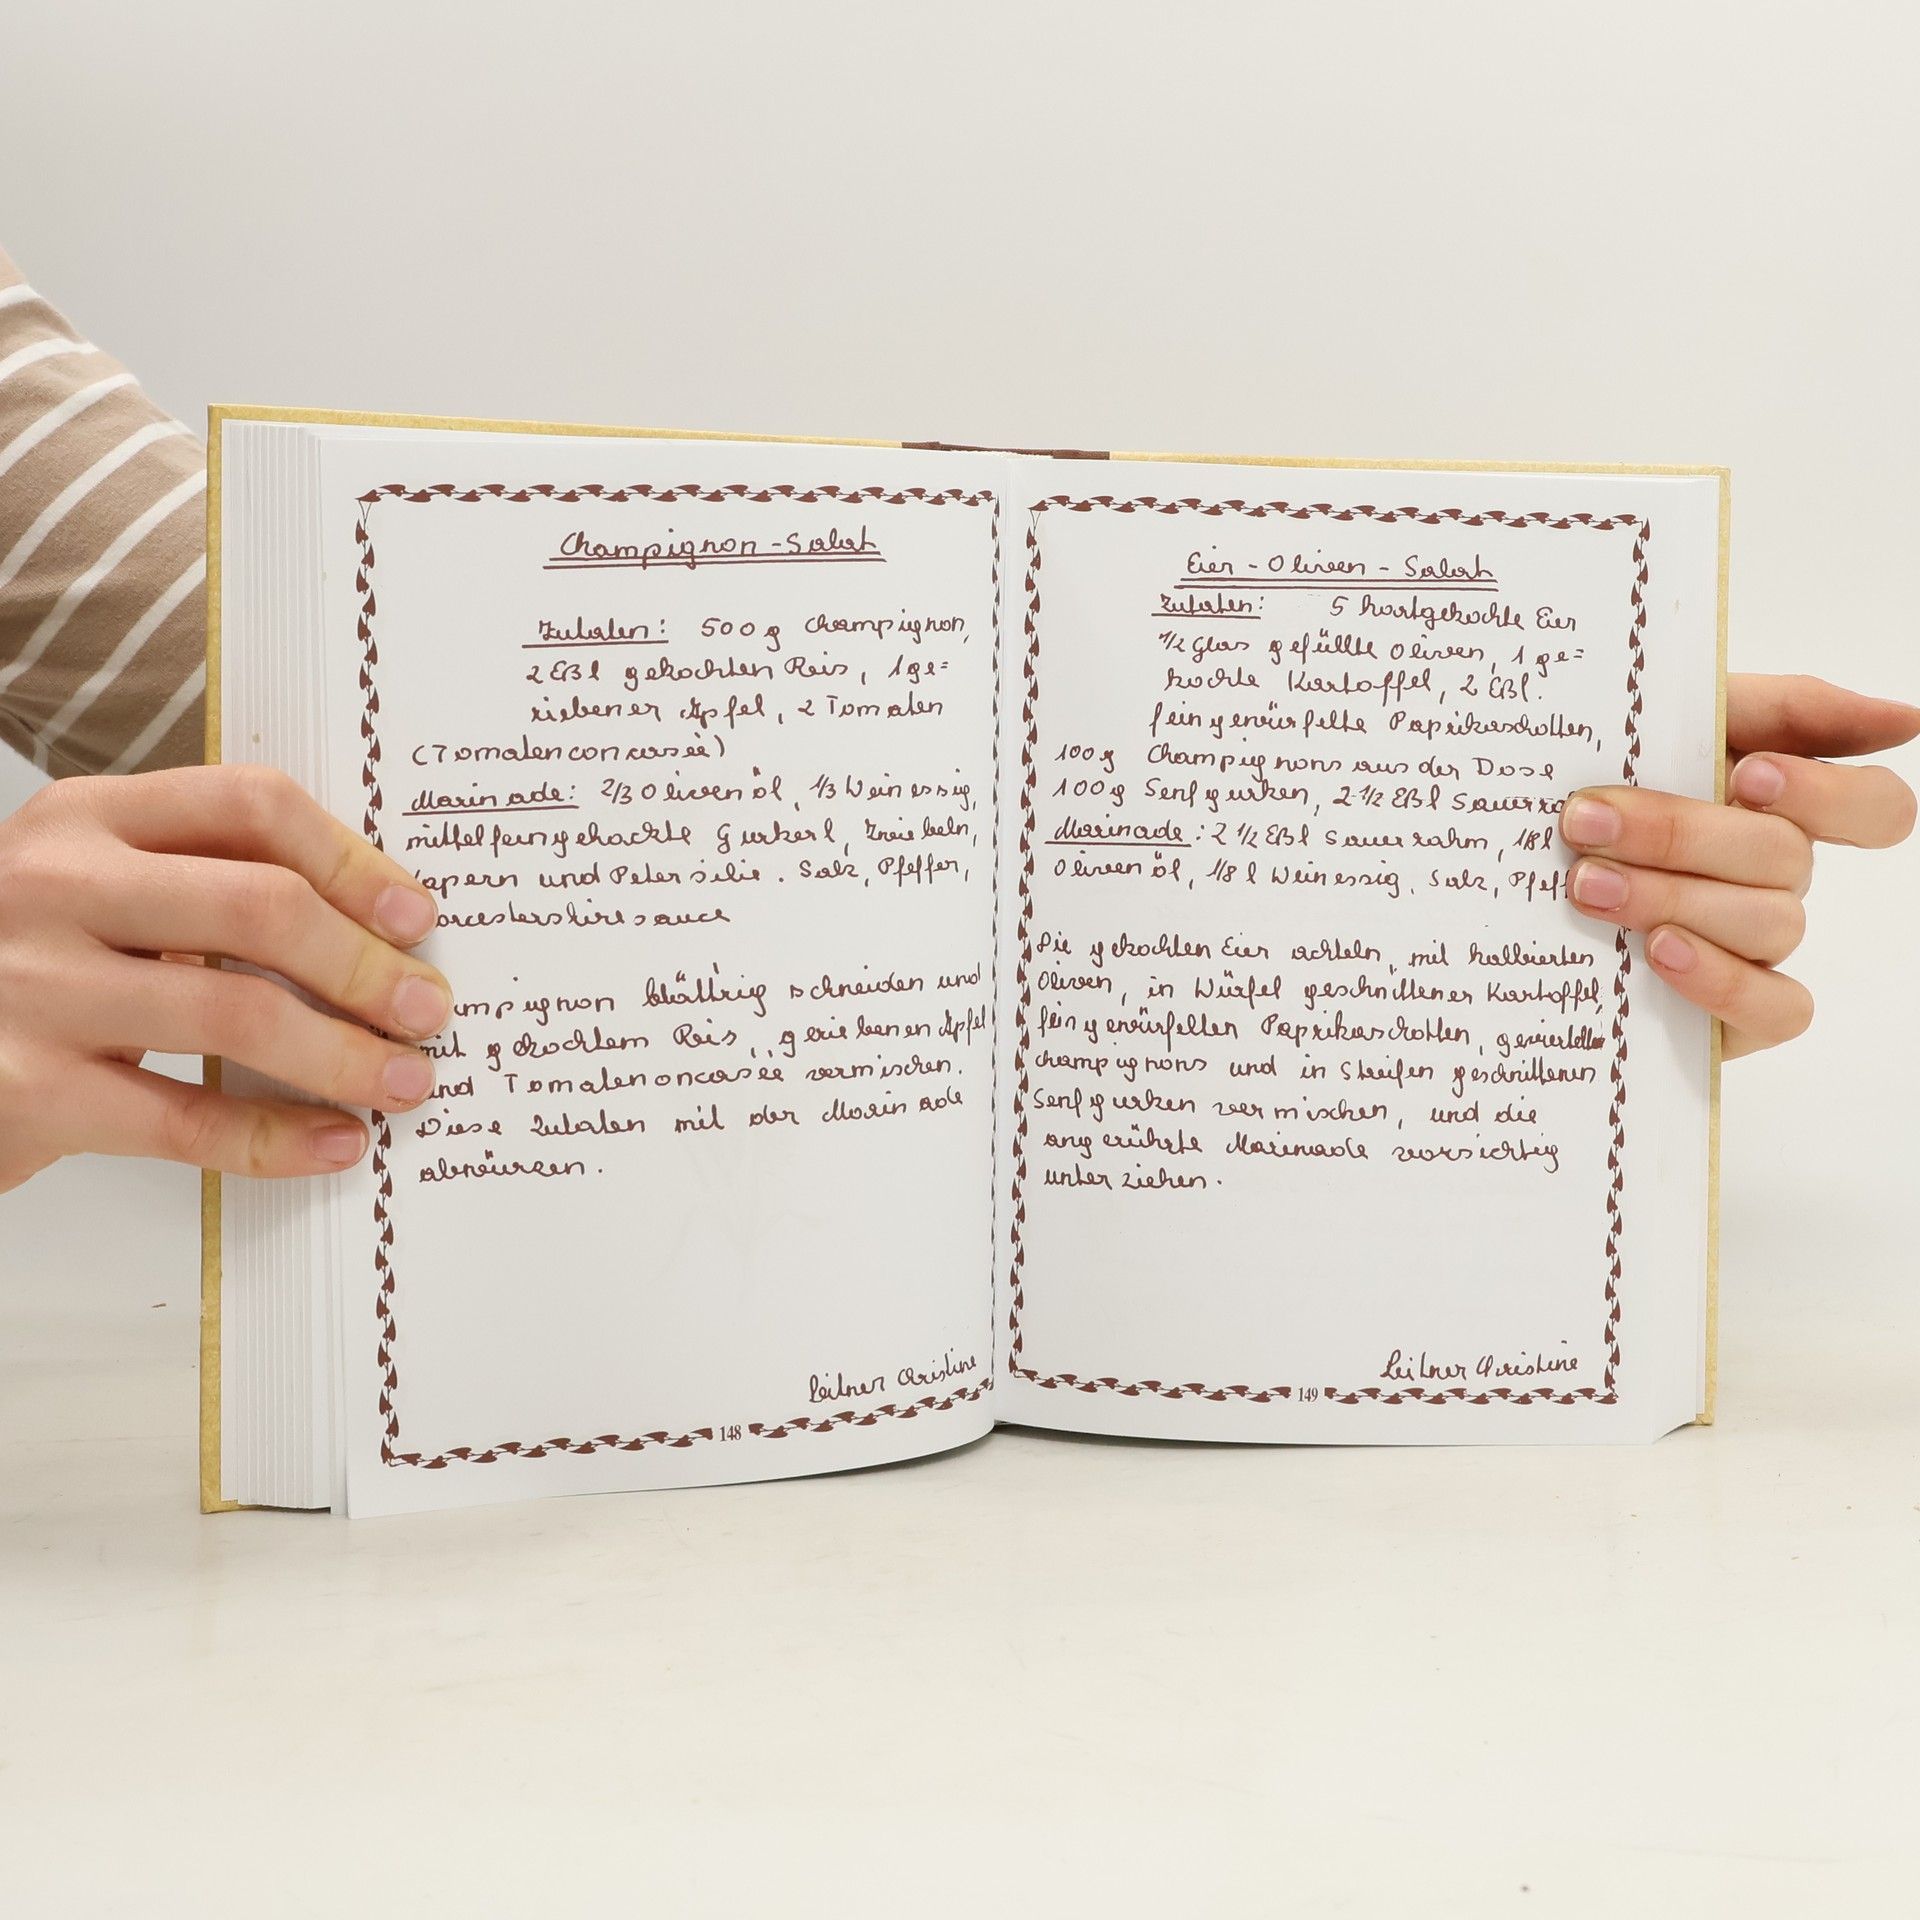 Champignon-Salat
Zutaten: 500 g Champignon,
2 EßI gekochten Reis, 1 ge=
riebener Apfel, 2 Tomaten
(Tomatenconcasée)
Marinade: 2/3 Olivenöl, 1/3 Weinessig,
mittelfeingehackte Gurkerl, Zwiebeln,
apern und Petersilie. Salz, Pfeffer,
orcestershiresauce
mpignon blättrig schneiden und
mit gekochtem Reis, geriebenen Apfel
und Tomatenoncasée vermischen.
Diese Zutaten mit der Marinade
abwürzen.
Leitner Christine
148
Eier-Oliven-Salat
Zutaten: 5 hartgekochte Eier
1/2 Glas gefüllte Oliven, 1 ge=
kochte Kartoffel, 2 Eßl.
feingewürfelte Paprikaschotten,
100g Champignons aus der Dose
100g Senfgurken, 2 1/2 Eßl Sauerra
Marinade: 2 1/2 Eßl Sauerrahm, 1/8 l
Olivenöl, 1/8 l Weinessig, Salz, Pfeff
Die gekochten Eier achteln, mit halbierten
Oliven, in Würfel geschnittener Kartoffel,
feingewürfelten Paprikaschotten, geviertelten
Champignons und in Streifen geschnittenen
Senfgurken vermischen, und die
angerührte Marinade vorsichtig
unterziehen.
Leitner Christine
149